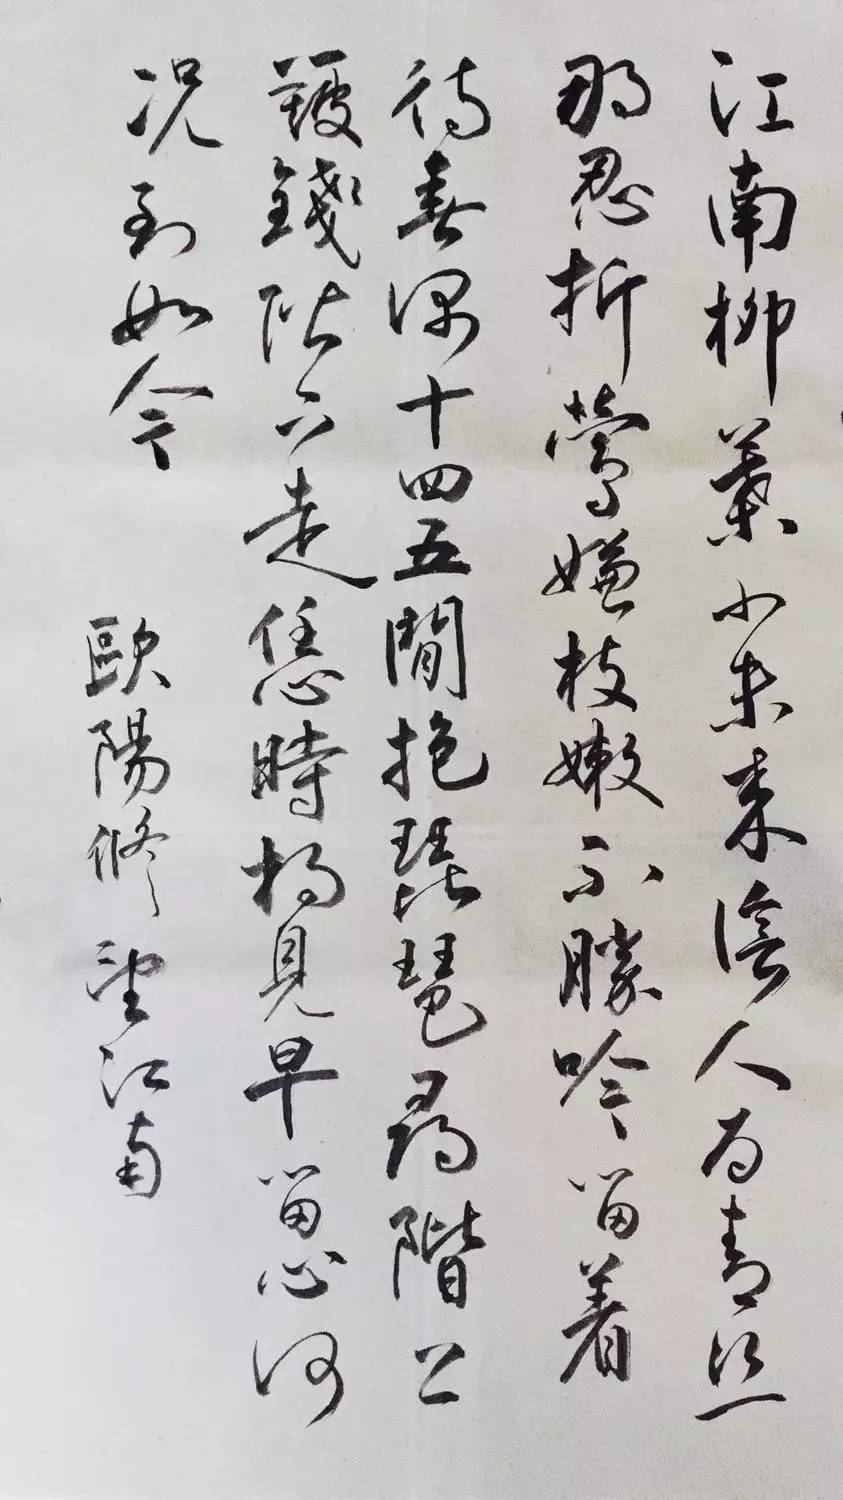 江南柳葉小未来陰人为青丝
那忍折鶯嫌枝嫩不勝吟留着
待春深十四五閒抱琵琶尋階上
簸錢階下走恁時相見早留心何
况到如今
歐陽修望江南